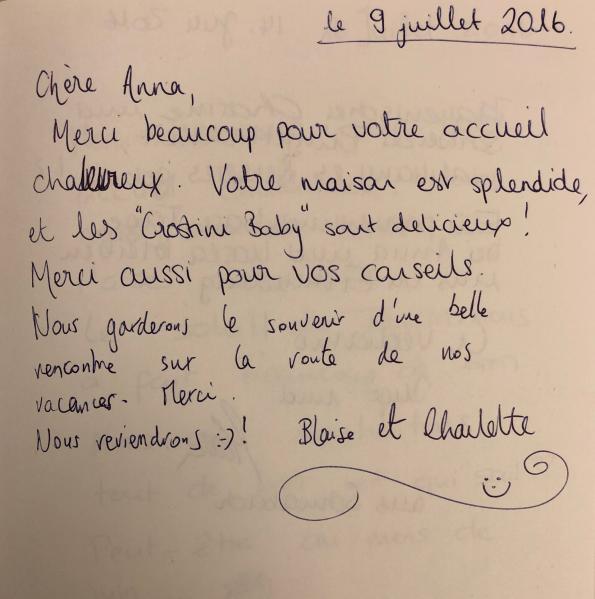 le 9 juillet 2016.
Chère Anna,
Merci beaucoup pour votre accueil
chaleureux. Votre maison est splendide,
et les "Crostini Baby" sont delicieux !
Merci aussi pour vos conseils.
Nous garderons le souvenir d'une belle
rencontre sur la route de nos
vacances. Merci.
Nous reviendrons :-) !
Blaise et Charlotte